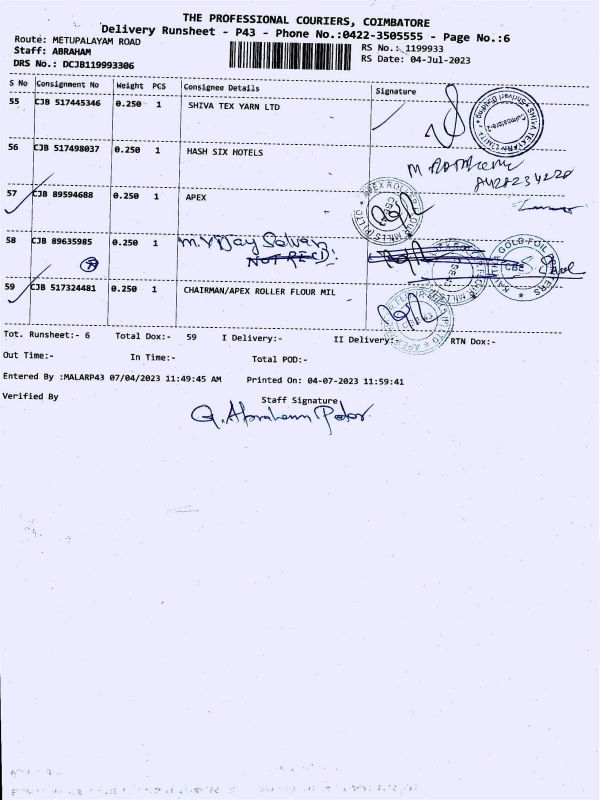 THE PROFESSIONAL COURIERS, COIMBATORE
Delivery Runsheet - P43 - Phone No.:0422-3505555 - Page No.:6
Route: METUPALAYAM ROAD
Staff: ABRAHAM
DRS No.: DCJB119993306
RS No.: 1199933
RS Date: 04-Jul-2023
S No Consignment No Weight PCS Consignee Details Signature
55 CJB 517445346 0.250 1 SHIVA TEX YARN LTD
56 CJB 517498037 0.250 1 HASH SIX HOTELS
57 CJB 89594688 0.250 1 APEX
58 CJB 89635985 0.250 1
NOT RECD:
59 CJB 517324481 0.250 1 CHAIRMAN/APEX ROLLER FLOUR MIL
Tot. Runsheet:- 6 Total Dox:- 59 I Delivery:- II Delivery:- RTN Dox:-
Out Time:- In Time:- Total POD:-
Entered By :MALARP43 07/04/2023 11:49:45 AM Printed On: 04-07-2023 11:59:41
Verified By Staff Signature